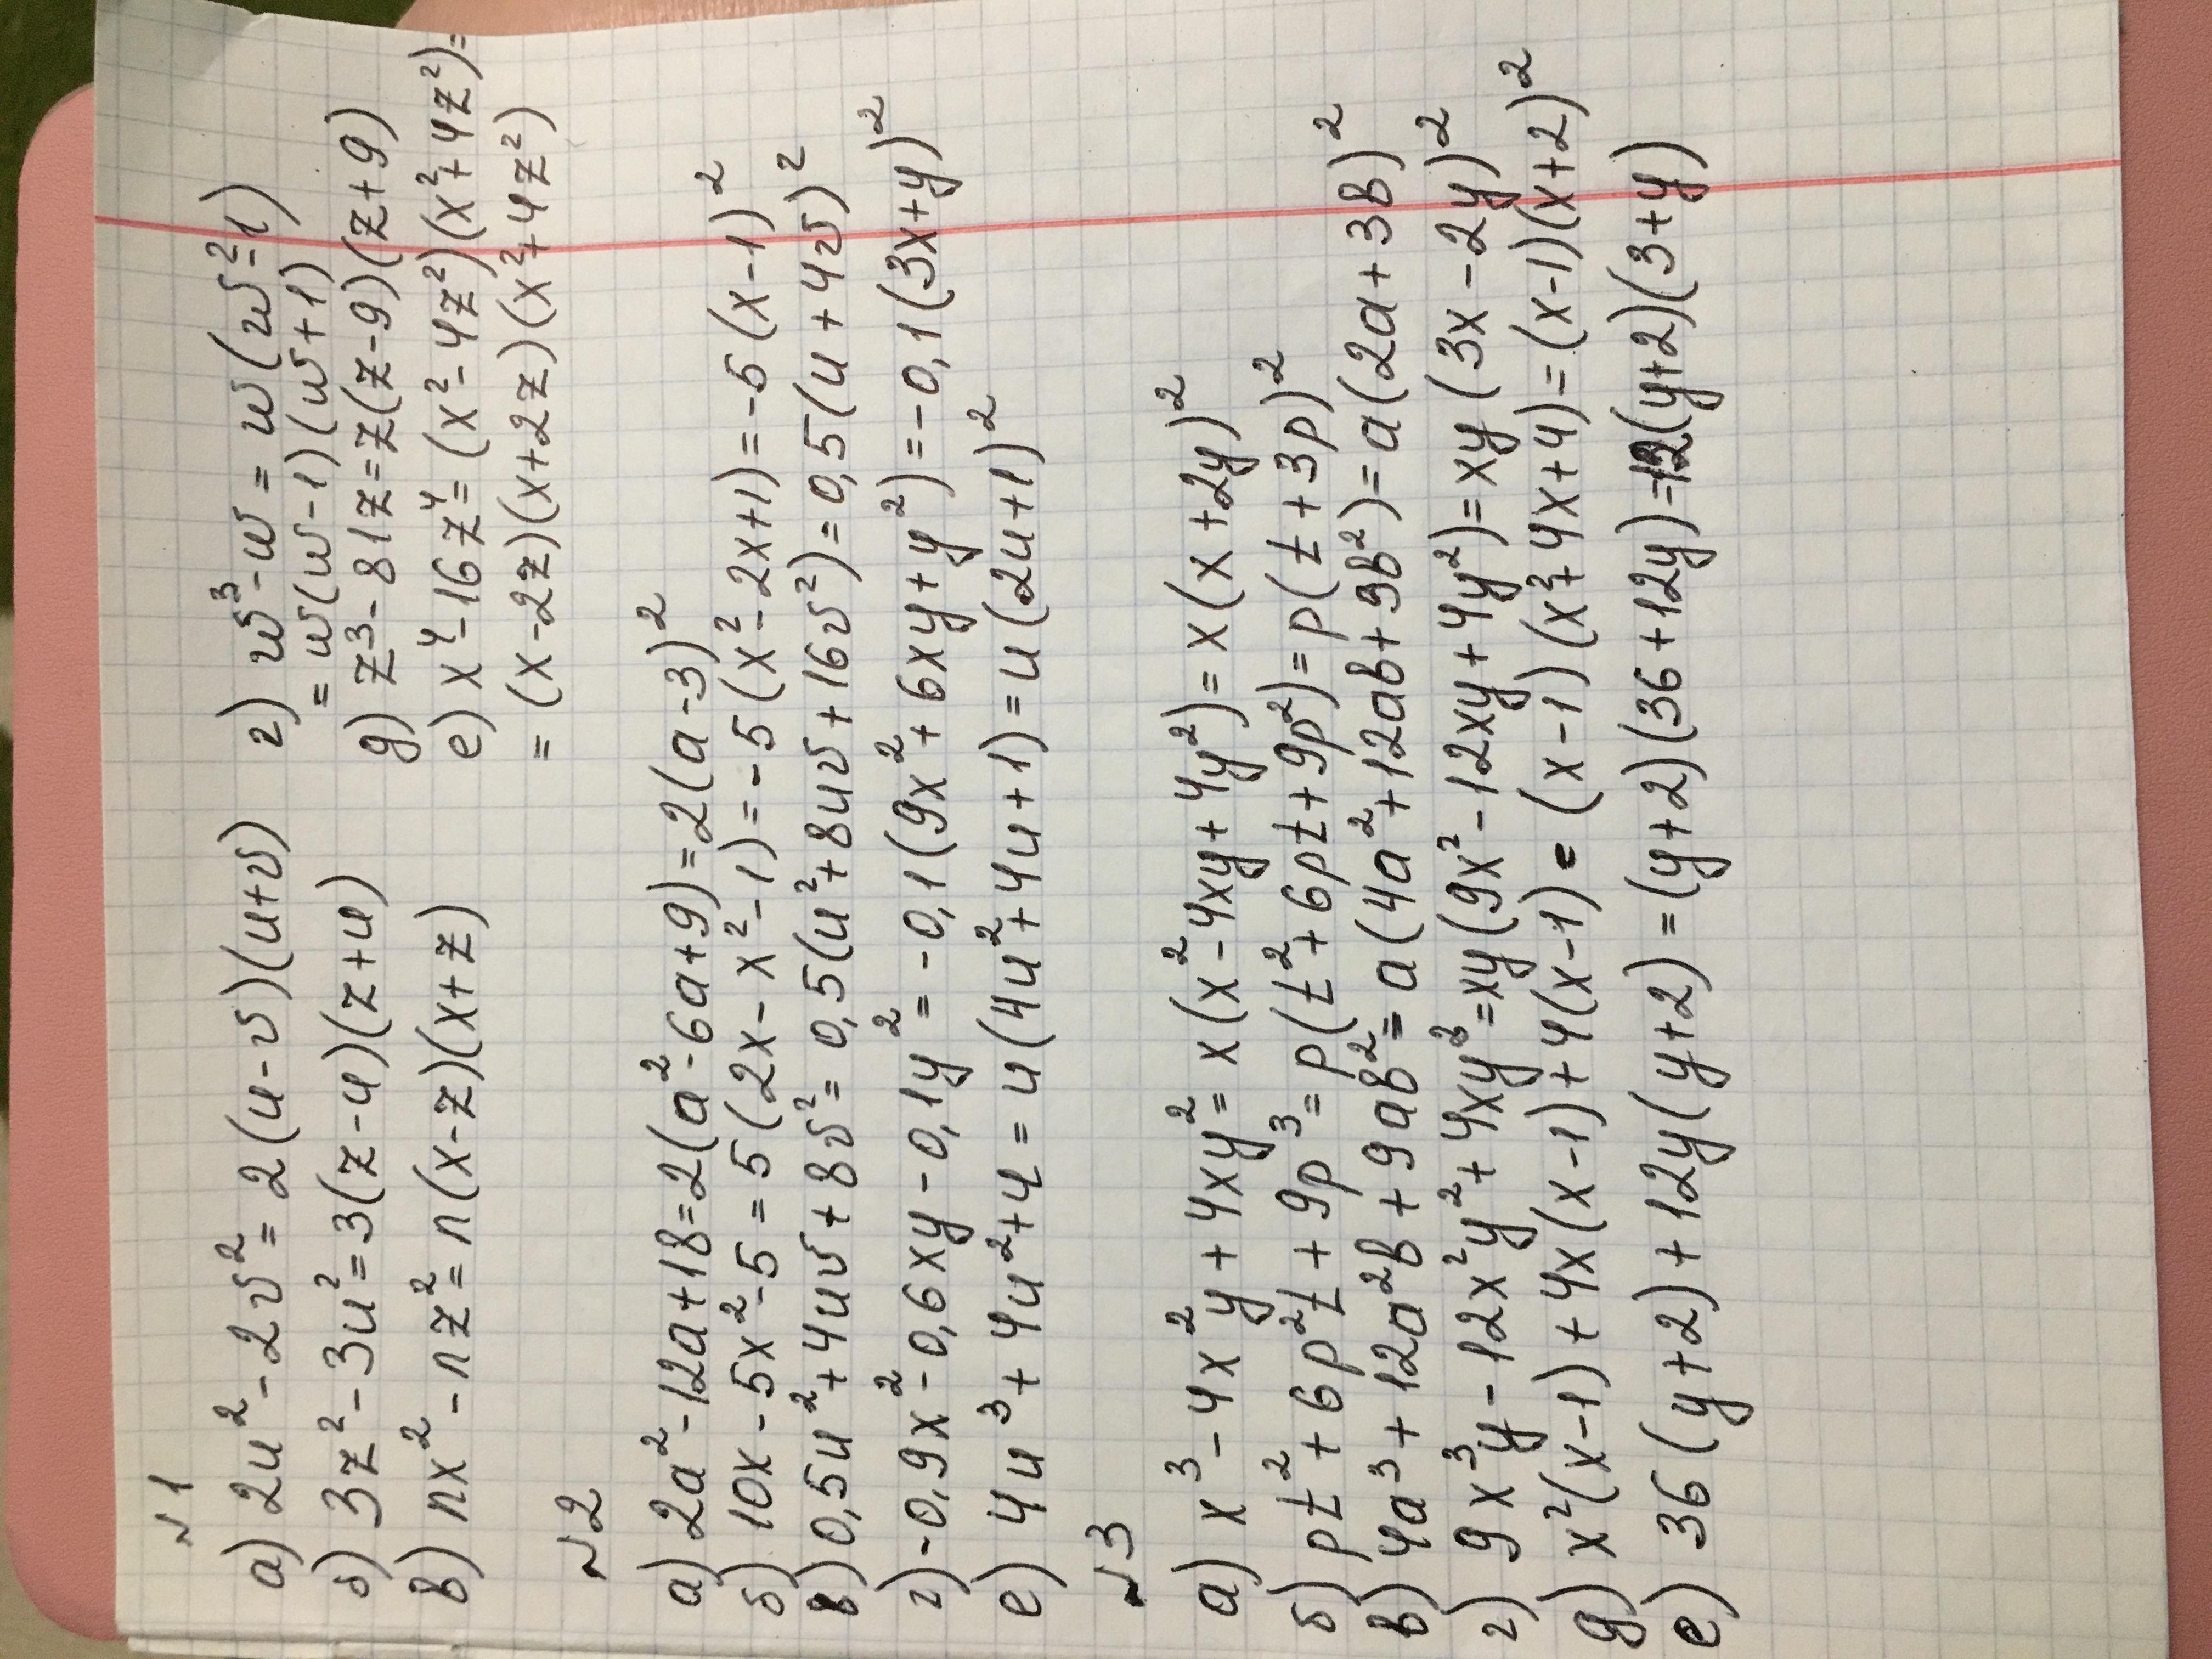 №1
а) 2u² - 2v² = 2(u-v)(u+v)
б) 3z² - 3u² = 3(z-u)(z+u)
в) nx² - nz² = n(x-z)(x+z)
г) w³-w = w(w²-1)
= w(w-1)(w+1)
д) z³-81z = z(z-9)(z+9)
е) x⁴-16z⁴ = (x²-4z²)(x²+4z²)=
= (x-2z)(x+2z)(x²+4z²)
№2
а) 2a²-12a+18=2(a²-6a+9)=2(a-3)²
б) 10x-5x²-5=5(2x-x²-1)=-5(x²-2x+1)=-5(x-1)²
в) 0,5u²+4uv+8v²=0,5(u²+8uv+16v²)=0,5(u+4v)²
г) -0,9x²-0,6xy-0,1y²=-0,1(9x²+6xy+y²)=-0,1(3x+y)²
е) 4u³+4u²+u=u(4u²+4u+1)=u(2u+1)²
№3
а) x³-4x²y+4xy²=x(x²-4xy+4y²)=x(x+2y)²
б) pt²+6p²t+9p³=p(t²+6pt+9p²)=p(t+3p)²
в) 4a³+12a²b+9ab²=a(4a²+12ab+9b²)=a(2a+3b)²
г) 9x³y-12x²y²+4xy³=xy(9x²-12xy+4y²)=xy(3x-2y)²
д) x²(x-1)+4x(x-1)+4(x-1)=(x-1)(x²+4x+4)=(x-1)(x+2)²
е) 36(y+2)+12y(y+2)=(y+2)(36+12y)=12(y+2)(3+y)